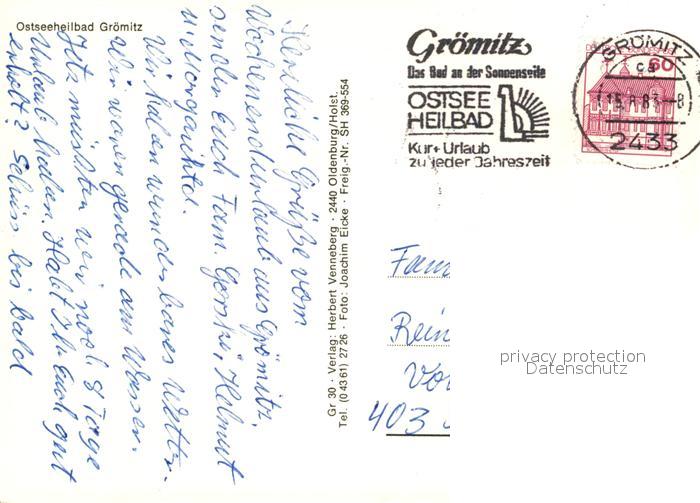 Ostseeheilbad Grömitz
Herzliche Grüße vom
Wochenendurlaub aus Grömitz.
senden Euch Fam. Gorski, Helmut
u. Morgautd.
Wir haben wunderbares Wetter.
Wir waren gerade am Wasser.
Jetz müßten wir noch 8 Tage
Urlaub haben. Habt Ihr Euch gut
erholt? Schüss bis bald
Gr 30 · Verlag: Herbert Venneberg · 2440 Oldenburg/Holst.
Tel. (0 43 61) 27 26 · Foto: Joachim Eicke · Freig.-Nr. SH 369-554
Grömitz
Das Bad an der Sonnenseite
OSTSEE
HEILBAD
Kur + Urlaub
zu jeder Jahreszeit
GRÖMITZ
ca
2433
60
Fam
Rein
Vo
403
privacy protection
Datenschutz